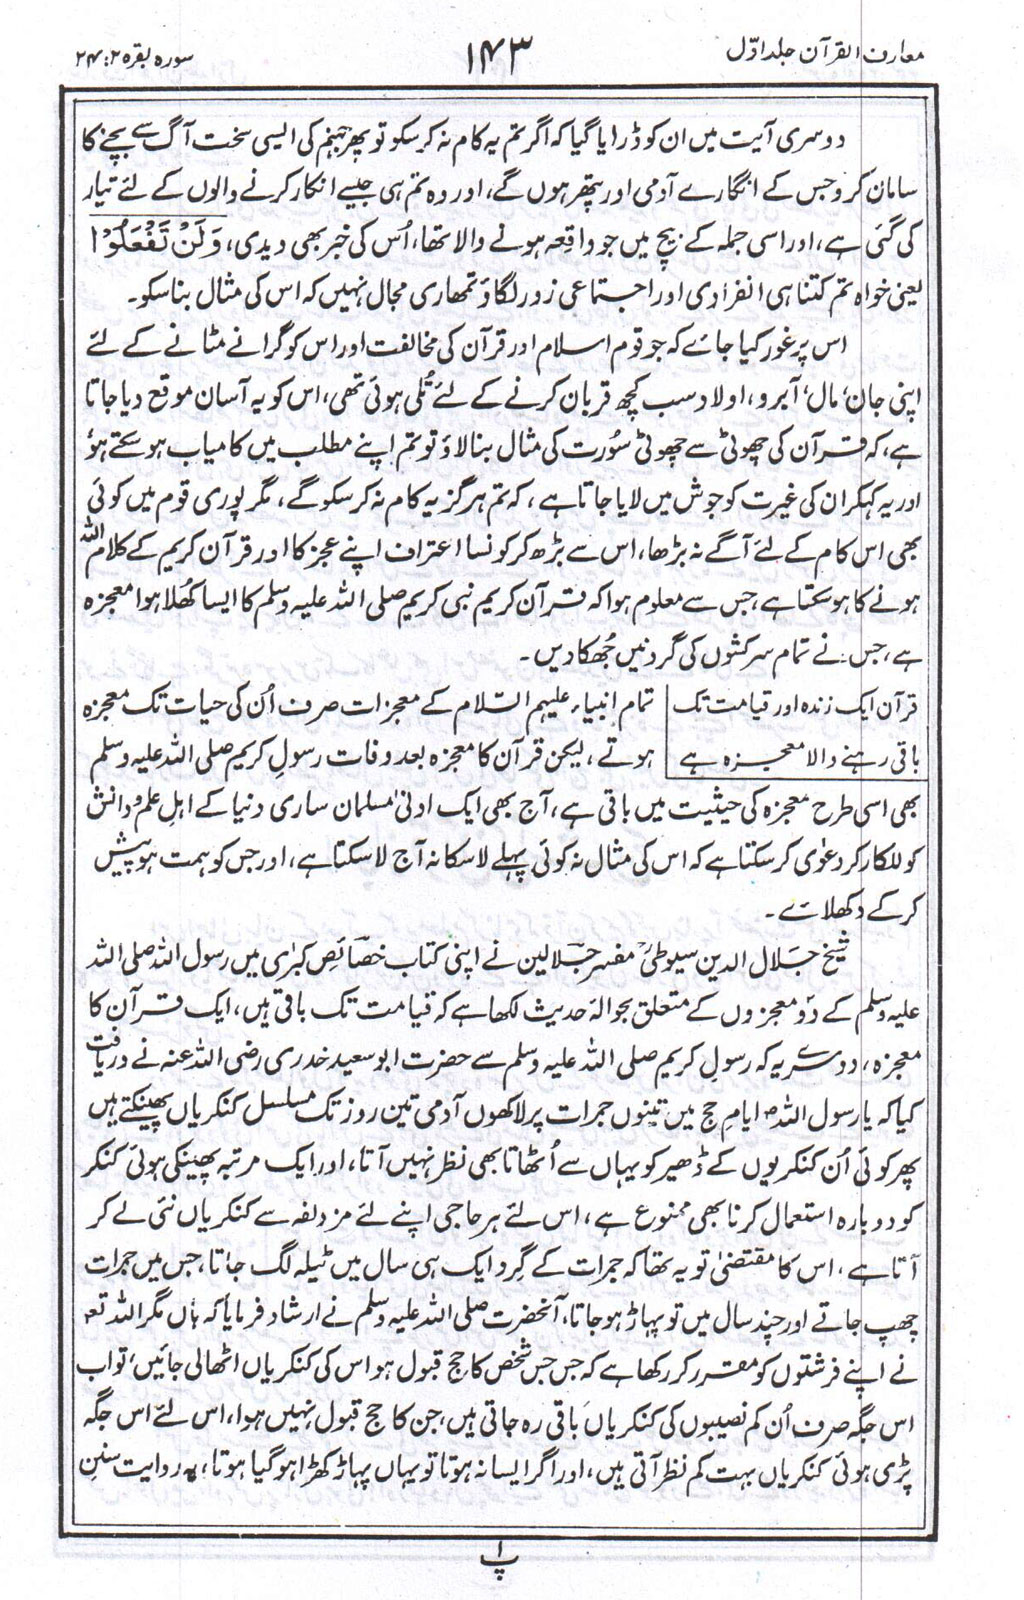 معارف القرآن جلد اوّل
۱۴۳
سورہ بقرہ ۲ : ۲۴
دوسری آیت میں ان کو ڈرایا گیا کہ اگر تم یہ کام نہ کر سکو تو پھر جہنم کی ایسی سخت آگ سے بچنے کا
سامان کرو جس کے انگارے آدمی اور پتھر ہوں گے، اور وہ تم ہی جیسے انکار کرنے والوں کے لئے تیار
کی گئی ہے، اور اسی جملہ کے بیچ میں جو واقعہ ہونے والا تھا، اُس کی خبر بھی دیدی، وَلَنْ تَفْعَلُوْا
یعنی خواہ تم کتنا ہی انفرادی اور اجتماعی زور لگاؤ تمھاری مجال نہیں کہ اس کی مثال بنا سکو۔
اس پر غور کیا جائے کہ جو قوم اسلام اور قرآن کی مخالفت اور اس کو گرانے مٹانے کے لئے
اپنی جان، مال، آبرو، اولاد سب کچھ قربان کرنے کے لئے تُلی ہوئی تھی، اس کو یہ آسان موقع دیا جاتا
ہے، کہ قرآن کی چھوٹی سے چھوٹی سُورت کی مثال بنا لاؤ تو تم اپنے مطلب میں کامیاب ہو سکتے ہو
اور یہ کہکر ان کی غیرت کو جوش میں لایا جاتا ہے، کہ تم ہرگز یہ کام نہ کر سکو گے، مگر پوری قوم میں کوئی
بھی اس کام کے لئے آگے نہ بڑھا، اس سے بڑھ کر کونسا اعتراف اپنے عجز کا اور قرآن کریم کے کلام اللہ
ہونے کا ہو سکتا ہے، جس سے معلوم ہوا کہ قرآن کریم نبی کریم صلی اللہ علیہ وسلم کا ایسا کھُلا ہوا معجزہ
ہے، جس نے تمام سرکشوں کی گردنیں جھکا دیں۔
قرآن ایک زندہ اور قیامت تک
باقی رہنے والا معجزہ ہے
تمام انبیاء علیہم السّلام کے معجزات صرف اُن کی حیات تک معجزہ
ہوتے، لیکن قرآن کا معجزہ بعد وفات رسولِ کریم صلی اللہ علیہ وسلم
بھی اسی طرح معجزہ کی حیثیت میں باقی ہے، آج بھی ایک ادنیٰ مسلمان ساری دنیا کے اہلِ علم و دانش
کو للکار کر دعوٰی کر سکتا ہے کہ اس کی مثال نہ کوئی پہلے لا سکا نہ آج لا سکتا ہے، اور جس کو ہمت ہو پیش
کرکے دکھلائے۔
شیخ جلال الدین سیوطیؒ مفسر جلالین نے اپنی کتاب خصائص کبرٰی میں رسول اللہ صلی اللہ
علیہ وسلم کے دو معجزوں کے متعلق بحوالہ حدیث لکھا ہے کہ قیامت تک باقی ہیں، ایک قرآن کا
معجزہ، دوسرے یہ کہ رسول کریم صلی اللہ علیہ وسلم سے حضرت ابو سعید خدری رضی اللہ عنہ نے دریافت
کیا کہ یا رسول اللہ ایامِ حج میں تینوں جمرات پر لاکھوں آدمی تین روز تک مسلسل کنکریاں پھینکتے ہیں
پھر کوئی اُن کنکریوں کے ڈھیر کو یہاں سے اُٹھاتا بھی نظر نہیں آتا، اور ایک مرتبہ پھینکی ہوئی کنکر
کو دوبارہ استعمال کرنا بھی ممنوع ہے، اس لئے ہر حاجی اپنے لئے مزدلفہ سے کنکریاں نئی لے کر
آتا ہے، اس کا مقتضیٰ تو یہ تھا کہ جمرات کے گِرد ایک ہی سال میں ٹیلہ لگ جاتا، جس میں جمرات
چھپ جاتے اور چند سال میں تو پہاڑ ہو جاتا، آنحضرت صلی اللہ علیہ وسلم نے ارشاد فرمایا کہ ہاں مگر اللہ تعہ
نے اپنے فرشتوں کو مقرر کر رکھا ہے کہ جس جس شخص کا حج قبول ہو اس کی کنکریاں اٹھالی جائیں، تو اب
اس جگہ صرف اُن کم نصیبوں کی کنکریاں باقی رہ جاتی ہیں، جن کا حج قبول نہیں ہوا، اس لئے اس جگہ
پڑی ہوئی کنکریاں بہت کم نظر آتی ہیں، اور اگر ایسا نہ ہوتا تو یہاں پہاڑ کھڑا ہو گیا ہوتا، یہ روایت سنن
پ